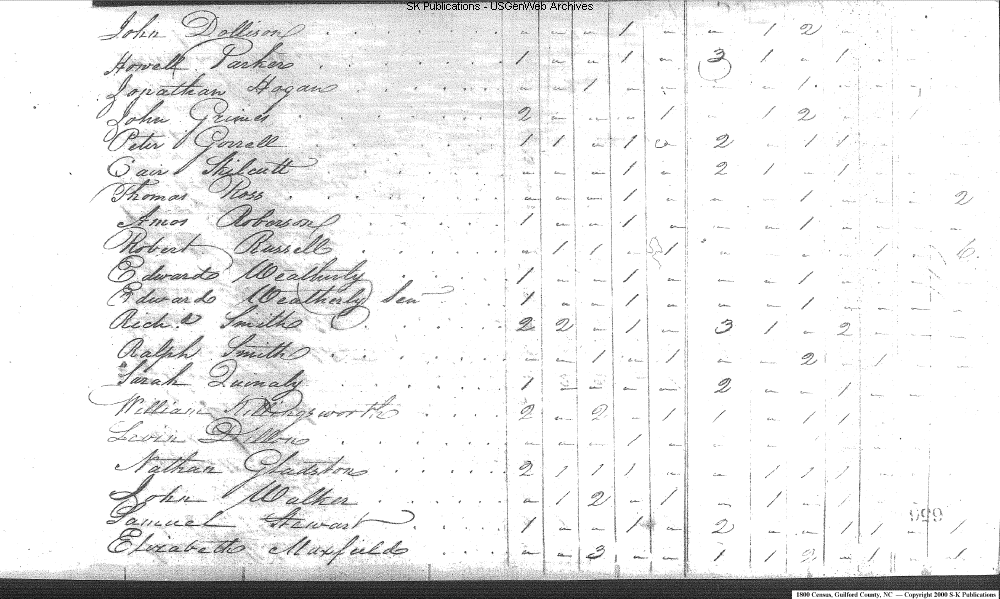 SK Publications - USGenWeb Archives
John Dollison - - - 1 - - 1 2
Howell Parker 1 - - 1 - 3 1 - 1 -
Jonathan Hogan - - 1 - - - - 1 -
John Grimes 2 - - - 1 - 1 2 -
Peter Gorrell 1 1 - 1 - 2 - 1 1 -
Skilcutt - - - 1 - 2 1 - 1 -
Thomas Ross - - - 1 - - - 1 - - - 2
Amos Roberson 1 - - 1 - - - 1 -
Robert Russell - 1 1 - 1 - - - - 1 - 6
Edward Weatherly 1 - - 1 - - - 1 -
Edward Weatherly Sen 1 - - 1 - - - 1 -
Rich.d Smith 2 2 - 1 - 3 1 - 2 -
Ralph Smith - - 1 - 1 - - 2 - 1
Sarah 1 - - - - 2 - - 1 -
William Killingsworth 2 - 2 - 1 1 - 1 1 -
Levin Dillon - - - 1 - - - -
Nathan Gladston 2 1 1 1 - - 1 1 1 -
John Walker - 1 2 - 1 - 1 - 1 -
Samuel Stewart 1 - - 1 - 2 - - 1 1 - 1
Elizabeth Maxfield - - 3 - - 1 1 2 - 1 - 1
1800 Census, Guilford County, NC — Copyright 2000 S-K Publications